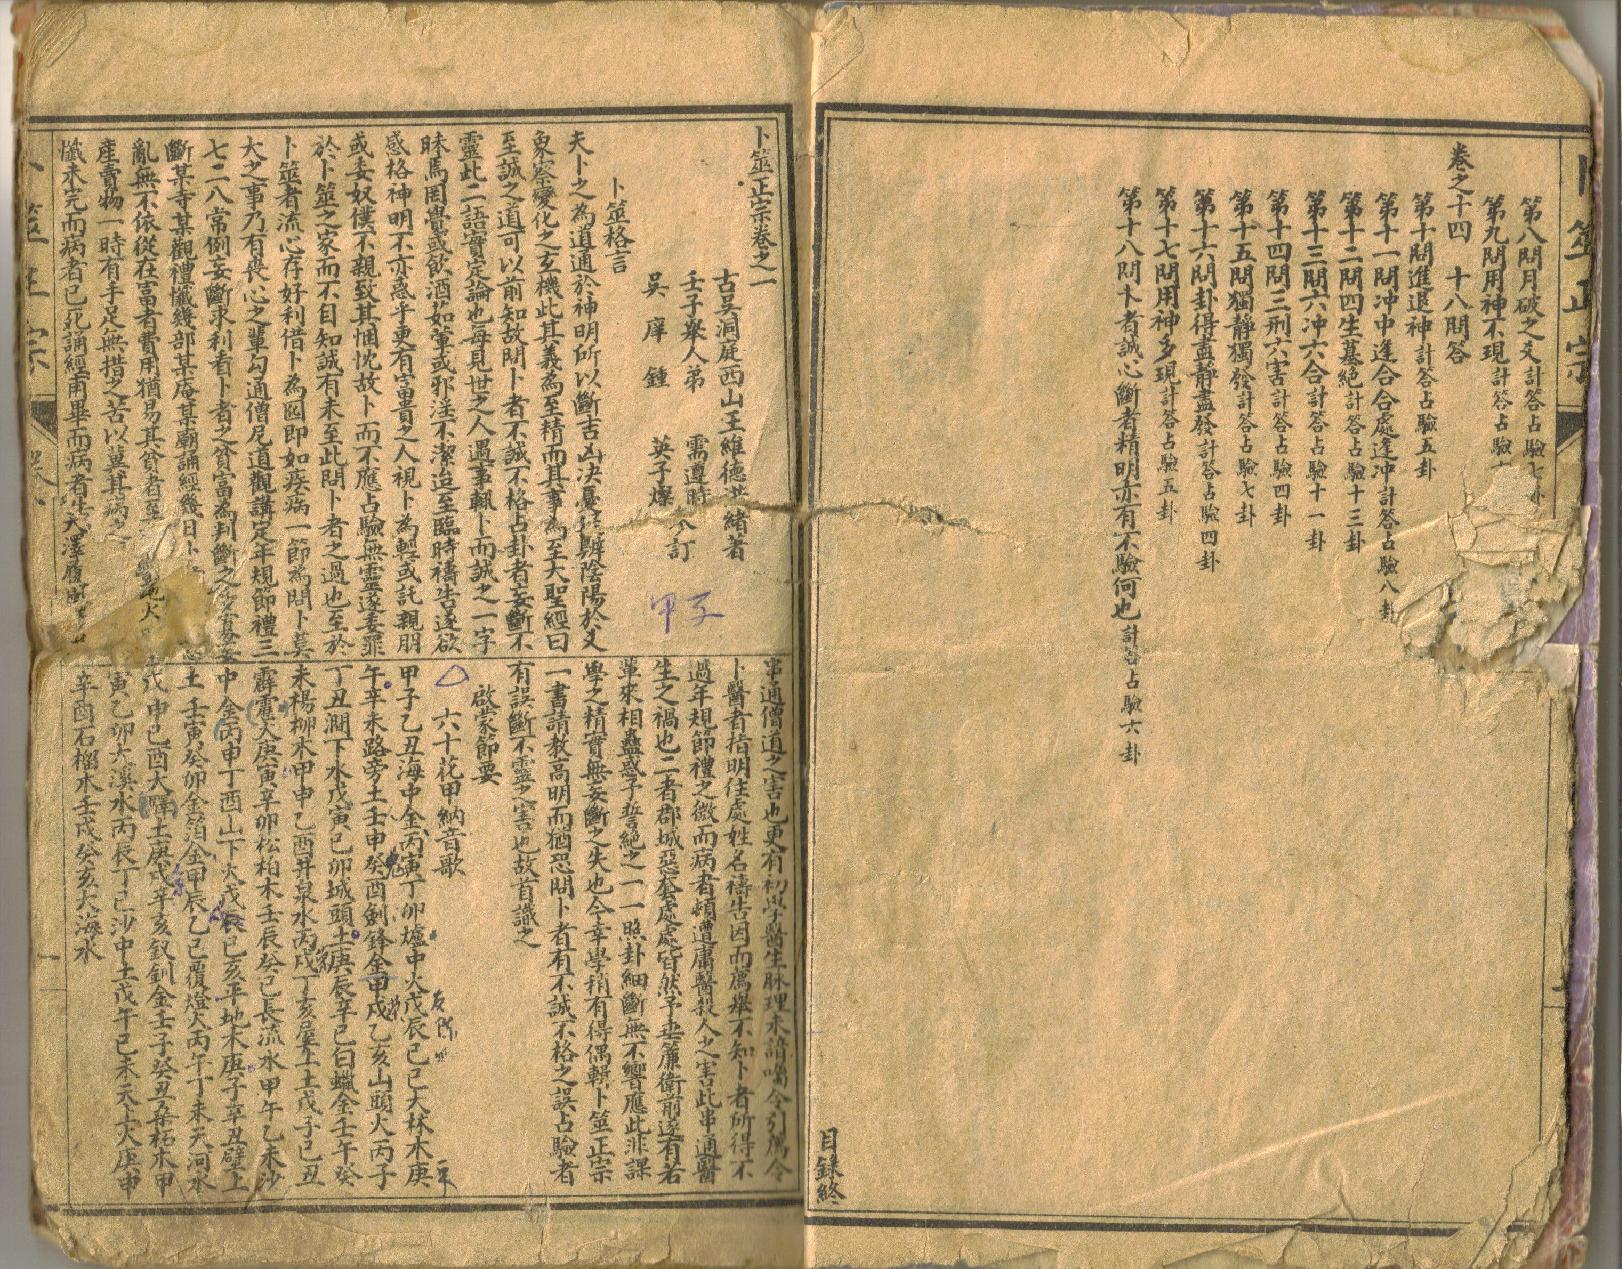 卜筮正宗
第八問月破之爻計答占驗七卦
第九問用神不現計答占驗
卷之十四　十八問答
第十問進退神計答占驗五卦
第十一問冲中逢合合處逢冲計答占驗八卦
第十二問四生墓絕計答占驗十三卦
第十三問六冲六合計答占驗十一卦
第十四問三刑六害計答占驗四卦
第十五問獨靜獨發計答占驗七卦
第十六問卦得盡靜盡發計答占驗四卦
第十七問用神多現計答占驗五卦
第十八問卜者誠心斷者精明亦有不驗何也計答占驗六卦
目錄終
卜筮正宗卷之一
古吳洞庭西山王維德洪緒著
壬子舉人弟　需遵時
吳　庠　鍾　英子燦　訂
甲子
卜筮格言
夫卜之為道通於神明所以斷吉凶決憂疑辨陰陽於爻
象察變化之玄機此其義為至精而其事為至大聖經曰
至誠之道可以前知故問卜者不誠不格占卦者妄斷不
靈此二語實定論也每見世之人遇事輒卜而誠之一字
昧焉罔覺或飲酒茹葷或邪淫不潔迨至臨時禱告遂欲
感格神明不亦惑乎更有富貴之人視卜為輕或託親朋
或委奴僕不親致其悃忱故卜而不應占驗無靈遂委罪
於卜筮之家而不自知誠有未至此問卜者之過也至於
卜筮者流心存好利借卜為囮即如疾病一節為問卜莫
大之事乃有喪心之輩勾通僧尼道觀講定年規節禮三
七二八常例妄斷求利看卜者之貧富為判斷之多寡妄
斷某寺某觀禮懺幾部某庵某廟誦經幾日卜
亂無不依從在富者費用猶易其貧者至
產賣物一時有手足無措之苦以冀其病之
懺未完而病者已死誦經甫畢而病者
串通僧道之害也更有初學醫生脉理未諳囑令引薦令
卜醫者指明住處姓名禱告因而薦舉不知卜者所得不
過年規節禮之微而病者頓遭庸醫殺人之害此串通醫
生之禍也二者郡城惡套處處皆然予垂簾衛前遂有若
輩來相蠱惑予誓絕之一一照卦細斷無不響應此非課
學之精實無妄斷之失也今幸學稍有得偶輯卜筮正宗
一書請教高明而猶恐問卜者有不誠不格之誤占驗者
有誤斷不靈之害也故首識之
啟蒙節要
六十花甲納音歌
甲子乙丑海中金丙寅丁卯爐中火戊辰己巳大林木庚
午辛未路旁土壬申癸酉劍鋒金甲戌乙亥山頭火丙子
丁丑澗下水戊寅己卯城頭土庚辰辛巳白蠟金壬午癸
未楊柳木甲申乙酉井泉水丙戌丁亥屋上土戊子己丑
霹靂火庚寅辛卯松柏木壬辰癸巳長流水甲午乙未沙
中金丙申丁酉山下火戊戌己亥平地木庚子辛丑壁上
土壬寅癸卯金箔金甲辰乙巳覆燈火丙午丁未天河水
戊申己酉大驛土庚戌辛亥釵釧金壬子癸丑桑柘木甲
寅乙卯大溪水丙辰丁巳沙中土戊午己未天上火庚申
辛酉石榴木壬戌癸亥大海水